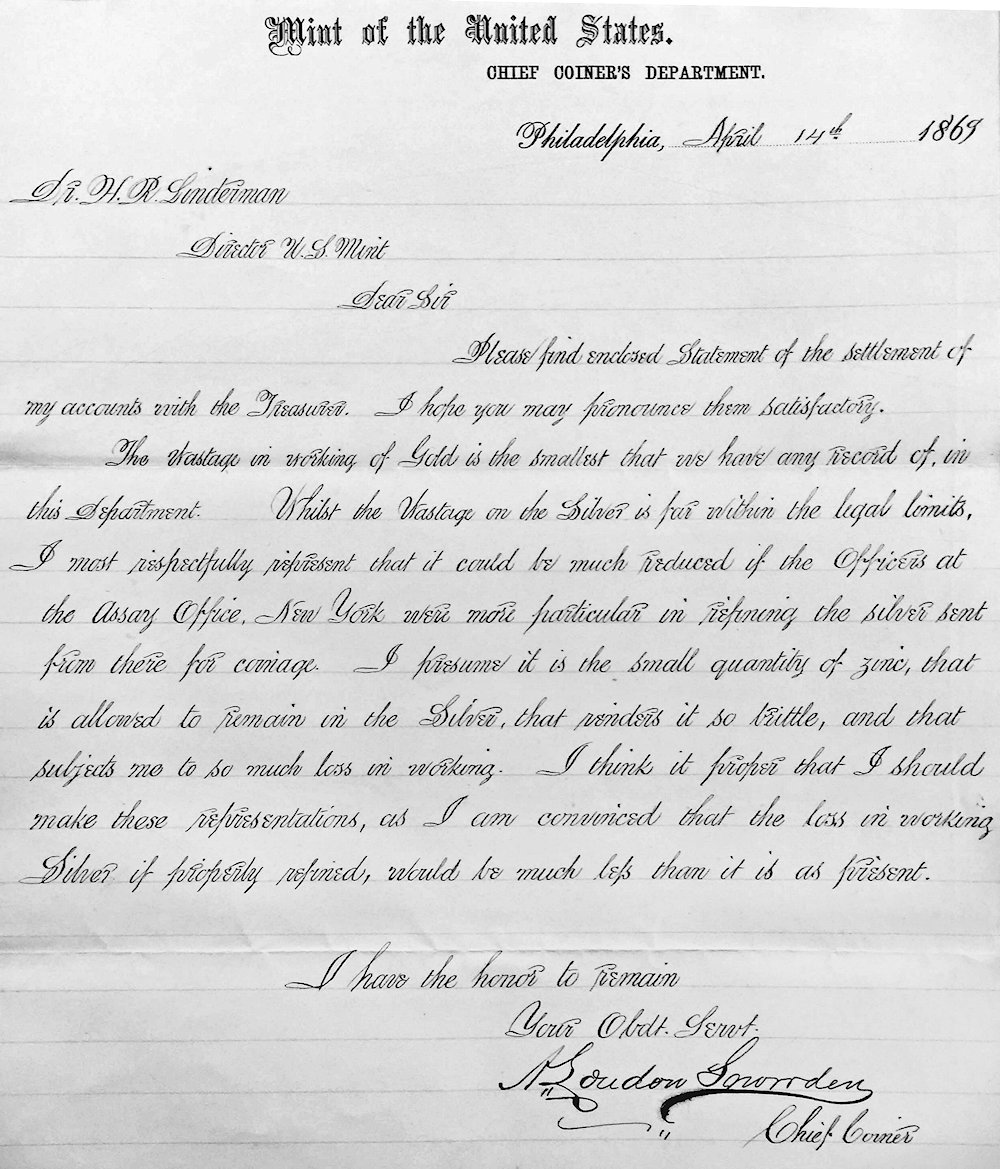 Mint of the United States.
CHIEF COINER'S DEPARTMENT.
Philadelphia, April 14th 1869
Dr. H. R. Linderman
Director U. S. Mint
Dear Sir
Please find enclosed Statement of the settlement of
my accounts with the Treasurer. I hope you may pronounce them satisfactory.
The Wastage in working of Gold is the smallest that we have any record of, in
this Department. Whilst the Wastage on the Silver is far within the legal limits,
I most respectfully represent that it could be much reduced if the Officers at
the Assay Office, New York were more particular in refining the silver sent
from there for coinage. I presume it is the small quantity of zinc, that
is allowed to remain in the Silver, that renders it so brittle, and that
subjects me to so much loss in working. I think it proper that I should
make these representations, as I am convinced that the loss in working
Silver if properly refined, would be much less than it is as present.
I have the honor to remain
Your Obdt. Servt.
A. Loudon Snowden
Chief Coiner